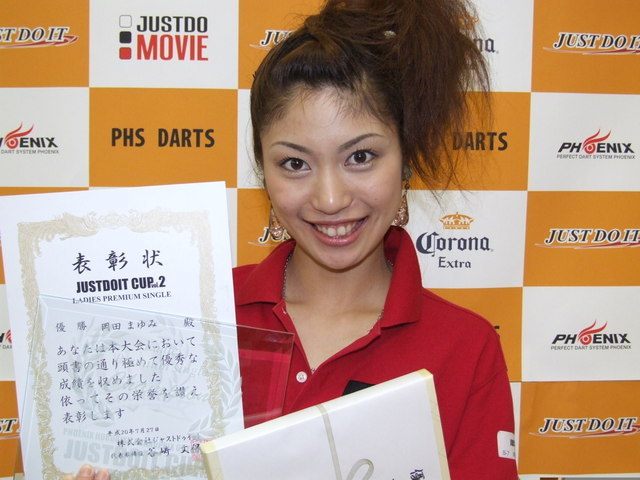 JUST DO IT
JUSTDO
MOVIE
JUST DO IT
Corona
JUST DO IT
PHOENIX
DART SYSTEM PHOENIX
PHS DARTS
DARTS
PHOENIX
PERFECT DART SYSTEM PHOENIX
Corona
Extra
JUST DO IT
PHOENIX
PERFECT DART SYSTEM PHOENIX
JUST DO IT
表彰状
JUSTDOIT CUP
LADIES PREMIUM SINGLE
優勝 岡田まゆみ 殿
あなたは本大会において
頭書の通り極めて優秀な
成績を収めました
依ってその栄誉を讃え
表彰します
平成20年7月27日
株式会社ジャストドゥイット
JUSTDOIT